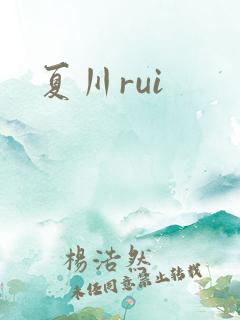 夏川rui
楊浩然
未经同意禁止转载